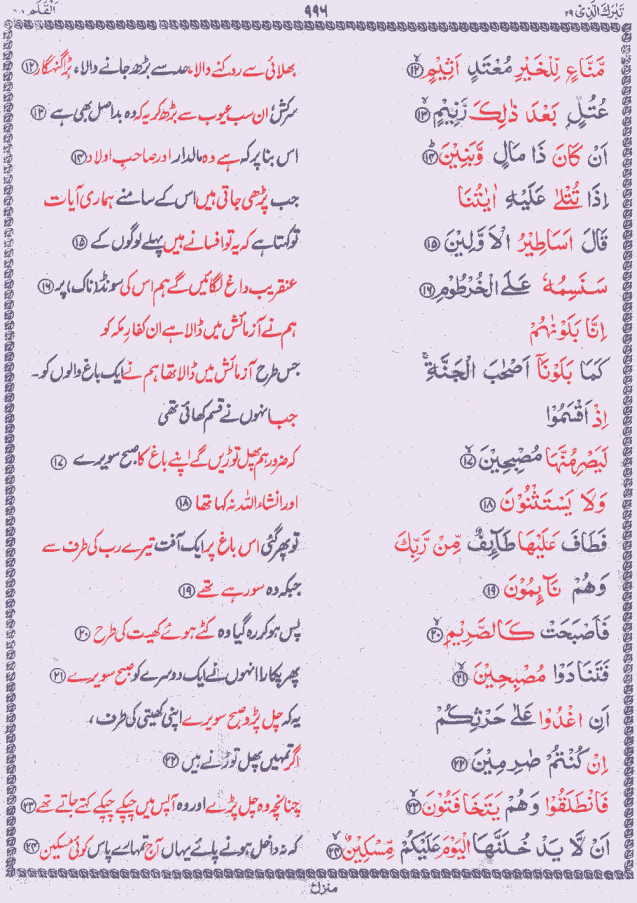 تَبٰرَكَ الَّذِىْ ٢٩ ٩٩٦ اَلْقَلَم ٦٨
مَّنَّاعٍ لِّلْخَيْرِ مُعْتَدٍ اَثِيْمٍ ﴿١٢﴾ بھلائی سے روکنے والا، حد سے بڑھ جانے والا، بڑا گنہگار ﴿١٢﴾
عُتُلٍّۭ بَعْدَ ذٰلِكَ زَنِيْمٍ ﴿١٣﴾ سرکش، ان سب عیوب سے بڑھ کر یہ کہ وہ بد اصل بھی ہے ﴿١٣﴾
اَنْ كَانَ ذَا مَالٍ وَّبَنِيْنَ ﴿١٤﴾ اس بنا پر کہ ہے وہ مالدار اور صاحبِ اولاد ﴿١٤﴾
اِذَا تُتْلٰى عَلَيْهِ اٰيٰتُنَا جب پڑھی جاتی ہیں اس کے سامنے ہماری آیات
قَالَ اَسَاطِيْرُ الْاَوَّلِيْنَ ﴿١٥﴾ تو کہتا ہے کہ یہ تو افسانے ہیں پہلے لوگوں کے ﴿١٥﴾
سَنَسِمُهٗ عَلَى الْخُرْطُوْمِ ﴿١٦﴾ عنقریب داغ لگائیں گے ہم اس کی سونڈ (ناک) پر ﴿١٦﴾
اِنَّا بَلَوْنٰهُمْ ہم نے آزمائش میں ڈالا ہے ان کفارِ مکہ کو
كَمَا بَلَوْنَآ اَصْحٰبَ الْجَنَّةِ ۚ جس طرح آزمائش میں ڈالا تھا ہم نے ایک باغ والوں کو۔
اِذْ اَقْسَمُوْا جب انہوں نے قسم کھائی تھی
لَيَصْرِمُنَّهَا مُصْبِحِيْنَ ﴿١٧﴾ کہ ضرور ہم پھل توڑیں گے اپنے باغ کا صبح سویرے ﴿١٧﴾
وَلَا يَسْتَثْنُوْنَ ﴿١٨﴾ اور انشاء اللہ نہ کہا تھا ﴿١٨﴾
فَطَافَ عَلَيْهَا طَآئِفٌ مِّنْ رَّبِّكَ تو پھر گئی اس باغ پر ایک آفت تیرے رب کی طرف سے
وَهُمْ نَآئِمُوْنَ ﴿١٩﴾ جبکہ وہ سو رہے تھے ﴿١٩﴾
فَاَصْبَحَتْ كَالصَّرِيْمِ ﴿٢٠﴾ پس ہو کر رہ گیا وہ کٹے ہوئے کھیت کی طرح ﴿٢٠﴾
فَتَنَادَوْا مُصْبِحِيْنَ ﴿٢١﴾ پھر پکارا انہوں نے ایک دوسرے کو صبح سویرے ﴿٢١﴾
اَنِ اغْدُوْا عَلٰى حَرْثِكُمْ یہ کہ چل پڑو صبح سویرے اپنی کھیتی کی طرف،
اِنْ كُنْتُمْ صٰرِمِيْنَ ﴿٢٢﴾ اگر تمہیں پھل توڑنے ہیں ﴿٢٢﴾
فَانْطَلَقُوْا وَهُمْ يَتَخَافَتُوْنَ ﴿٢٣﴾ چنانچہ وہ چل پڑے اور وہ آپس میں چپکے چپکے کہتے جاتے تھے ﴿٢٣﴾
اَنْ لَّا يَدْخُلَنَّهَا الْيَوْمَ عَلَيْكُمْ مِّسْكِيْنٌ ﴿٢٤﴾ کہ نہ داخل ہونے پائے یہاں آج تمہارے پاس کوئی مسکین ﴿٢٤﴾
منزل